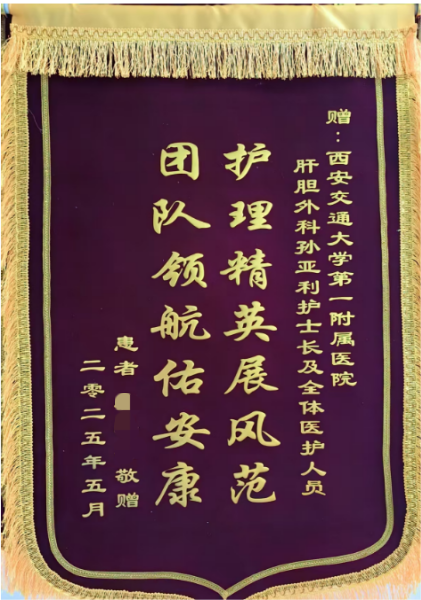 赠：西安交通大学第一附属医院
肝胆外科孙亚利护士长及全体医护人员
护理精英展风范
团队领航佑安康
患者 敬赠
二零二五年五月